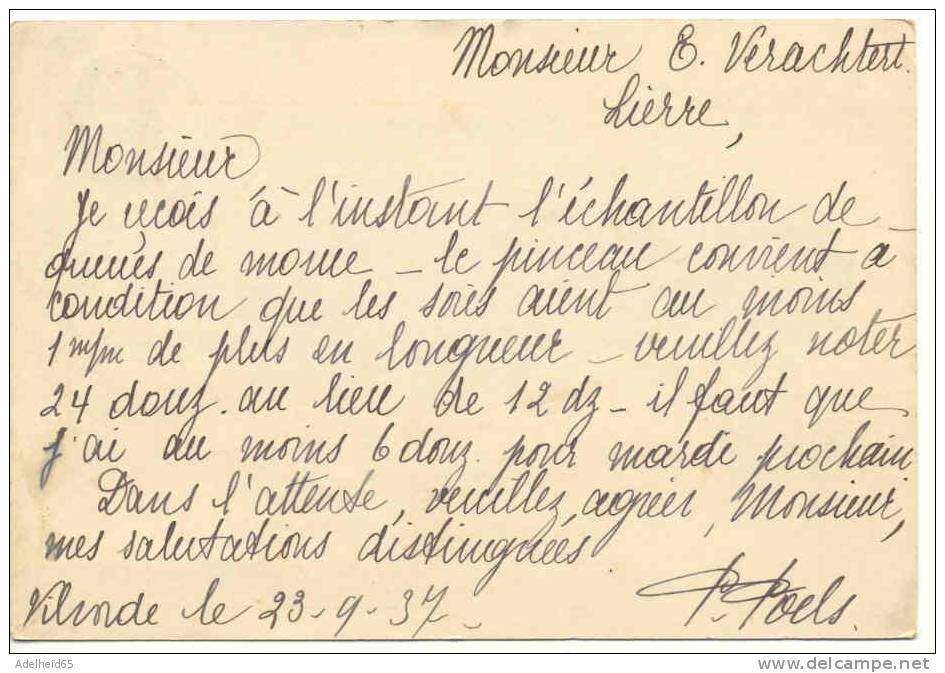 Monsieur E. Verachtert.
Lierre,
Monsieur
Je reçois à l'instant l'échantillon de
queues de morue – le pinceau convient à
condition que les soies aient au moins
1 m/m de plus en longueur – veuillez noter
24 douz. au lieu de 12 dz – il faut que
j'ai au moins 6 douz. pour mardi prochain
Dans l'attente, veuillez, agréer, Monsieur,
mes salutations distinguées
Vilvorde le 23-9-37.
P. Poels.
Adelheid65
www.delcampe.net